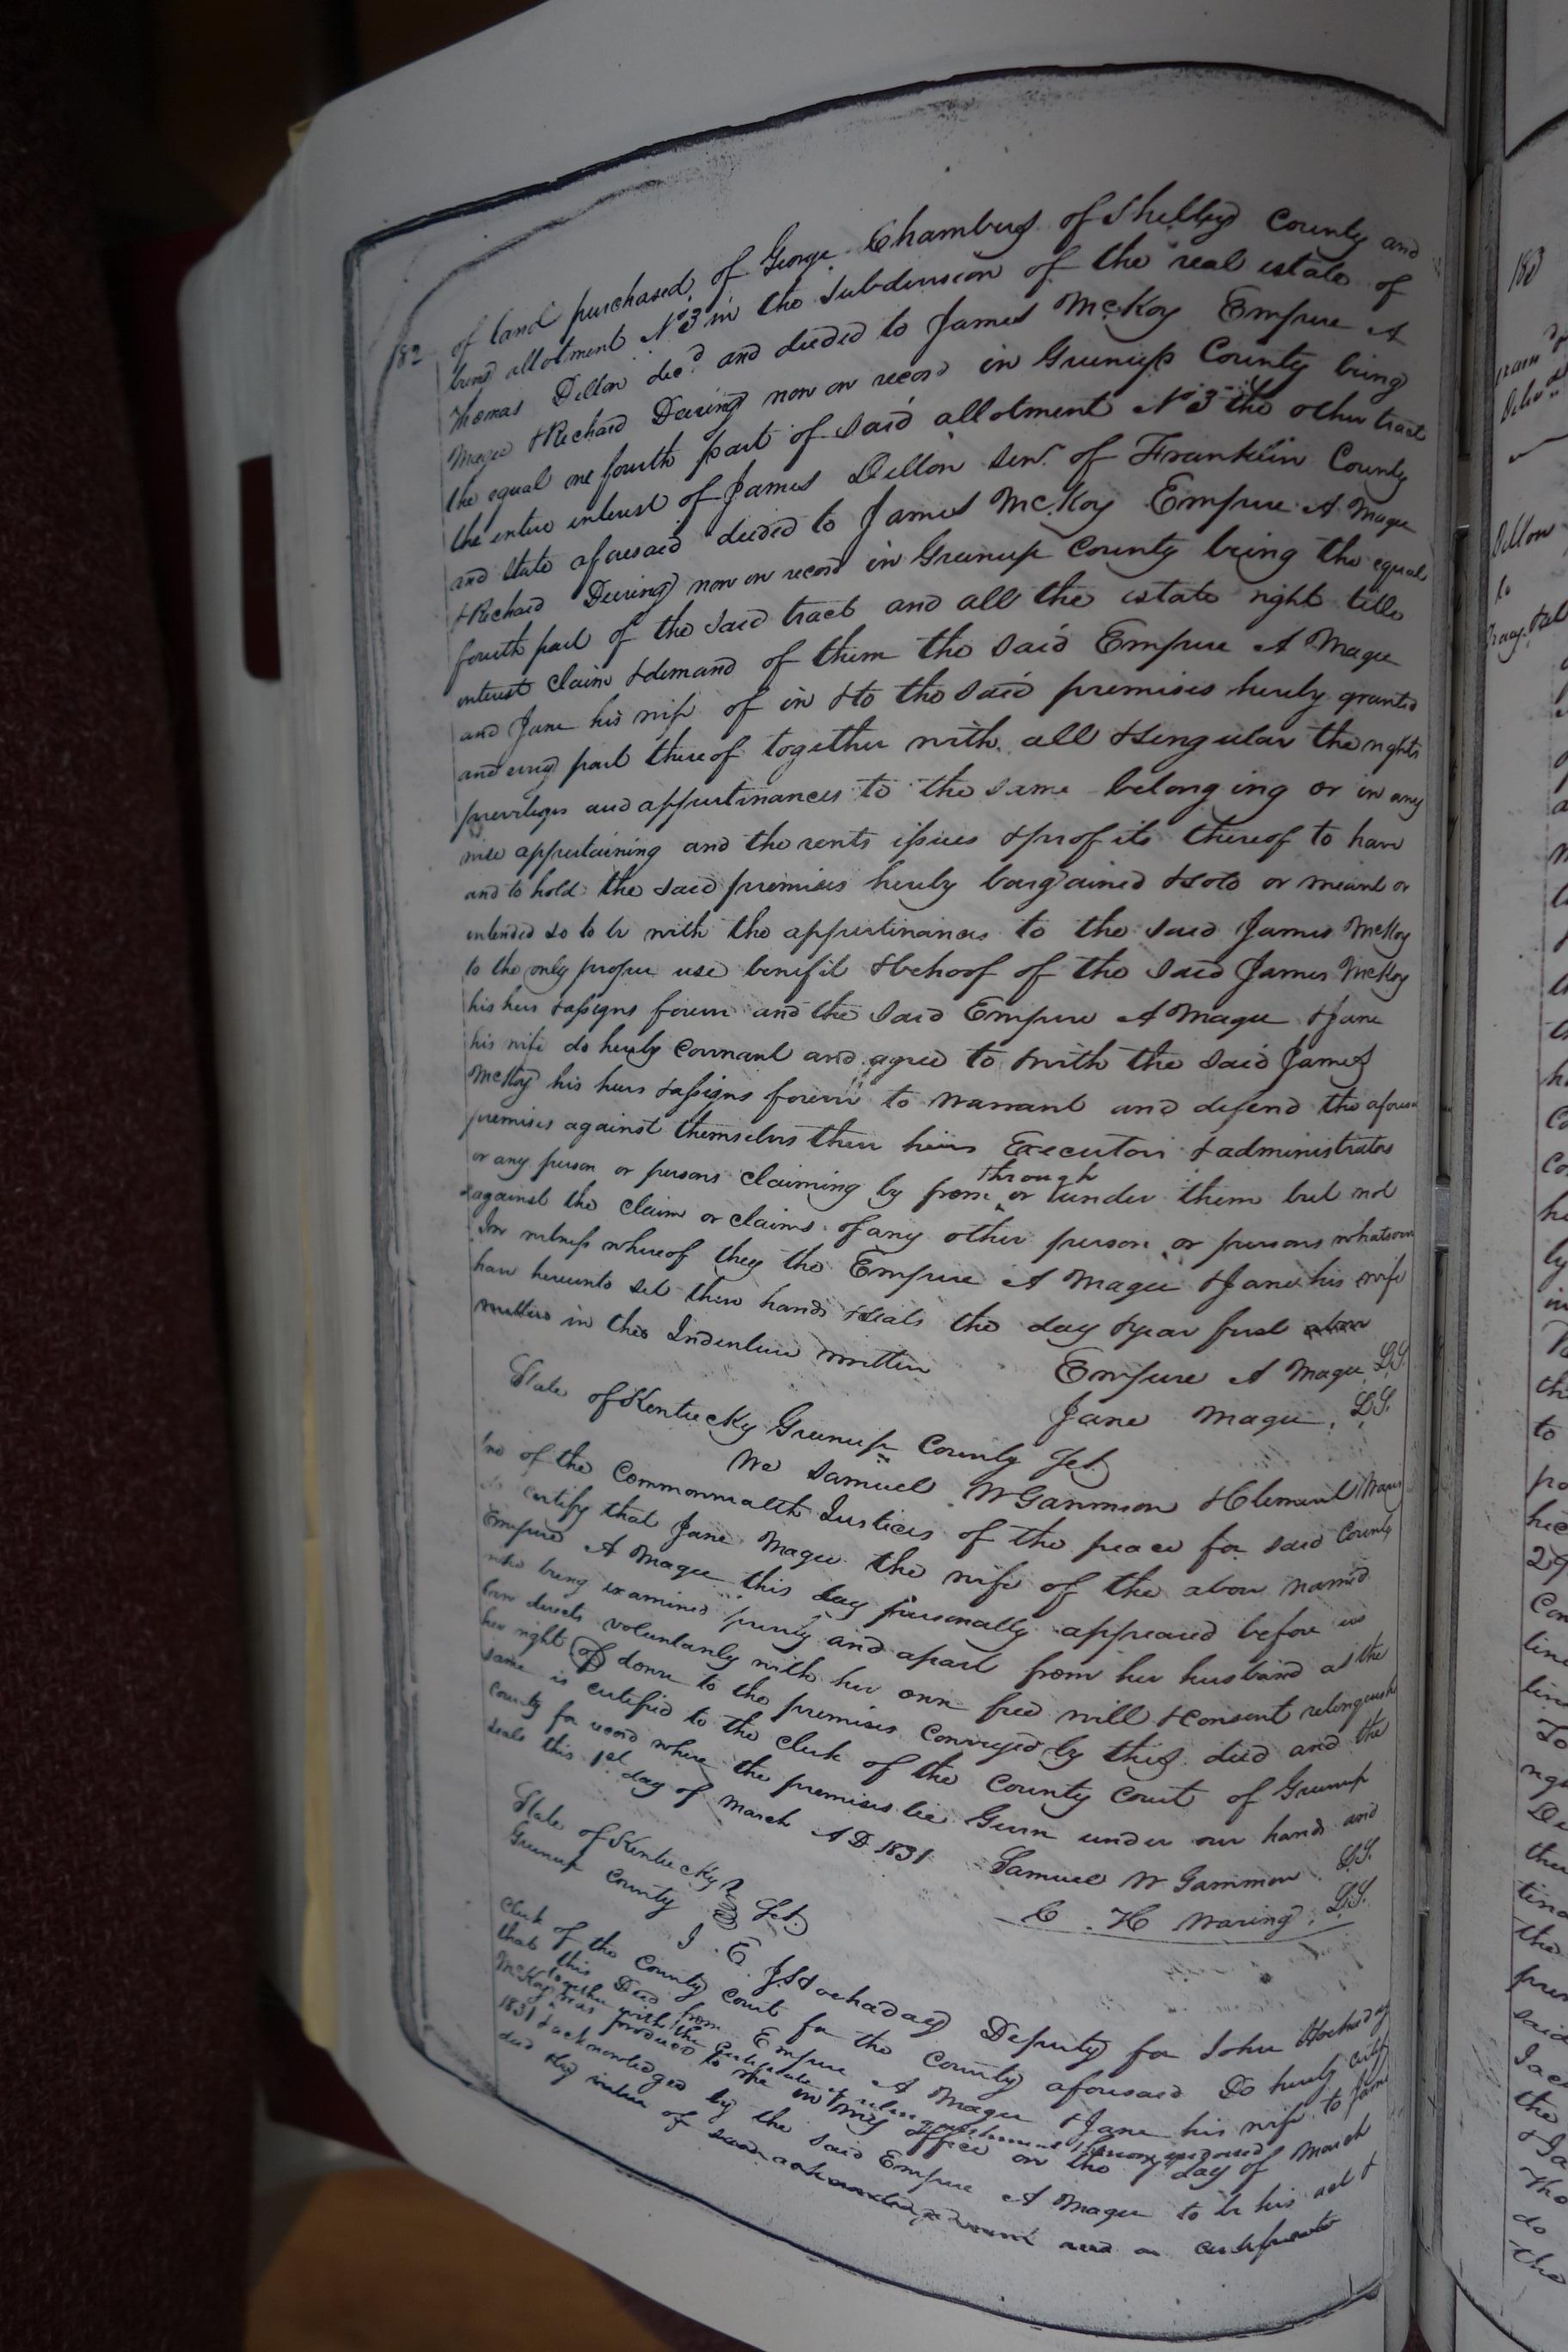 182
of land purchased of George Chambers of Shelby County and
being allotment No 3 in the Subdivision of the real estate of
Thomas Dillon decd and deeded to James McKoy Empire A
Magee & Richard Deering now on record in Greenup County being
the equal one fourth part of said allotment No 3 the other tract
the entire interest of James Dillon Senr. of Franklin County
and State aforesaid deeded to James McKoy Empire A Magee
& Richard Deering now on record in Greenup County being the equal
fourth part of the said tract and all the estate right title
interest claim & demand of them the said Empire A Magee
and Jane his wife of in & to the said premises hereby granted
and every part thereof together with all & singular the rights
priviliges and appurtinances to the same belonging or in any
wise appertaining and the rents issues & profits thereof to have
and to hold the said premises hereby bargained & sold or meant or
intended so to be with the appurtinances to the said James McKoy
to the only proper use benefit & behoof of the said James McKoy
his heirs & assigns forever and the said Empire A Magee & Jane
his wife do hereby covenant and agree to & with the said James
McKoy his heirs & assigns forever to warrant and defend the aforesd
premises against themselves their heirs Executors & administrators
or any person or persons claiming by from or through under them but not
& against the claim or claims of any other person or persons whatsoever
In witness whereof they the Empire A Magee & Jane his wife
have hereunto set their hands & seals the day & year first above
written in this Indenture written
Empire A Magee L.S.
Jane Magee L.S.
State of Kentucky Greenup County Sct
We Samuel W Gammon & Clement Waring
two of the Commonwealth Justices of the peace for said County
do certify that Jane Magee the wife of the above named
Empire A Magee this day personally appeared before us
who being examined privily and apart from her husband as the
law directs voluntarily with her own free will & consent relinquish
her right of dower to the premises conveyed by this deed and the
same is certified to the clerk of the County Court of Greenup
County for record where the premises lie Given under our hands and
seals this 1st day of March A D 1831
Samuel W Gammon L.S.
C. H Waring L.S.
State of Kentucky
Greenup County Sct.
I E J Hockaday Deputy for John Hockaday
Clerk of the County Court for the County aforesaid Do hereby certify
that this Deed from Empire A Magee & Jane his wife to James
together with the certificate of relinquishment thereon endorsed
McKoy was produced to me in my office on the 7 day of March
1831 & acknowledged by the said Empire A Magee to be his act &
deed & by virtue of said acknowledgement and a certificate
183
Dillon
to